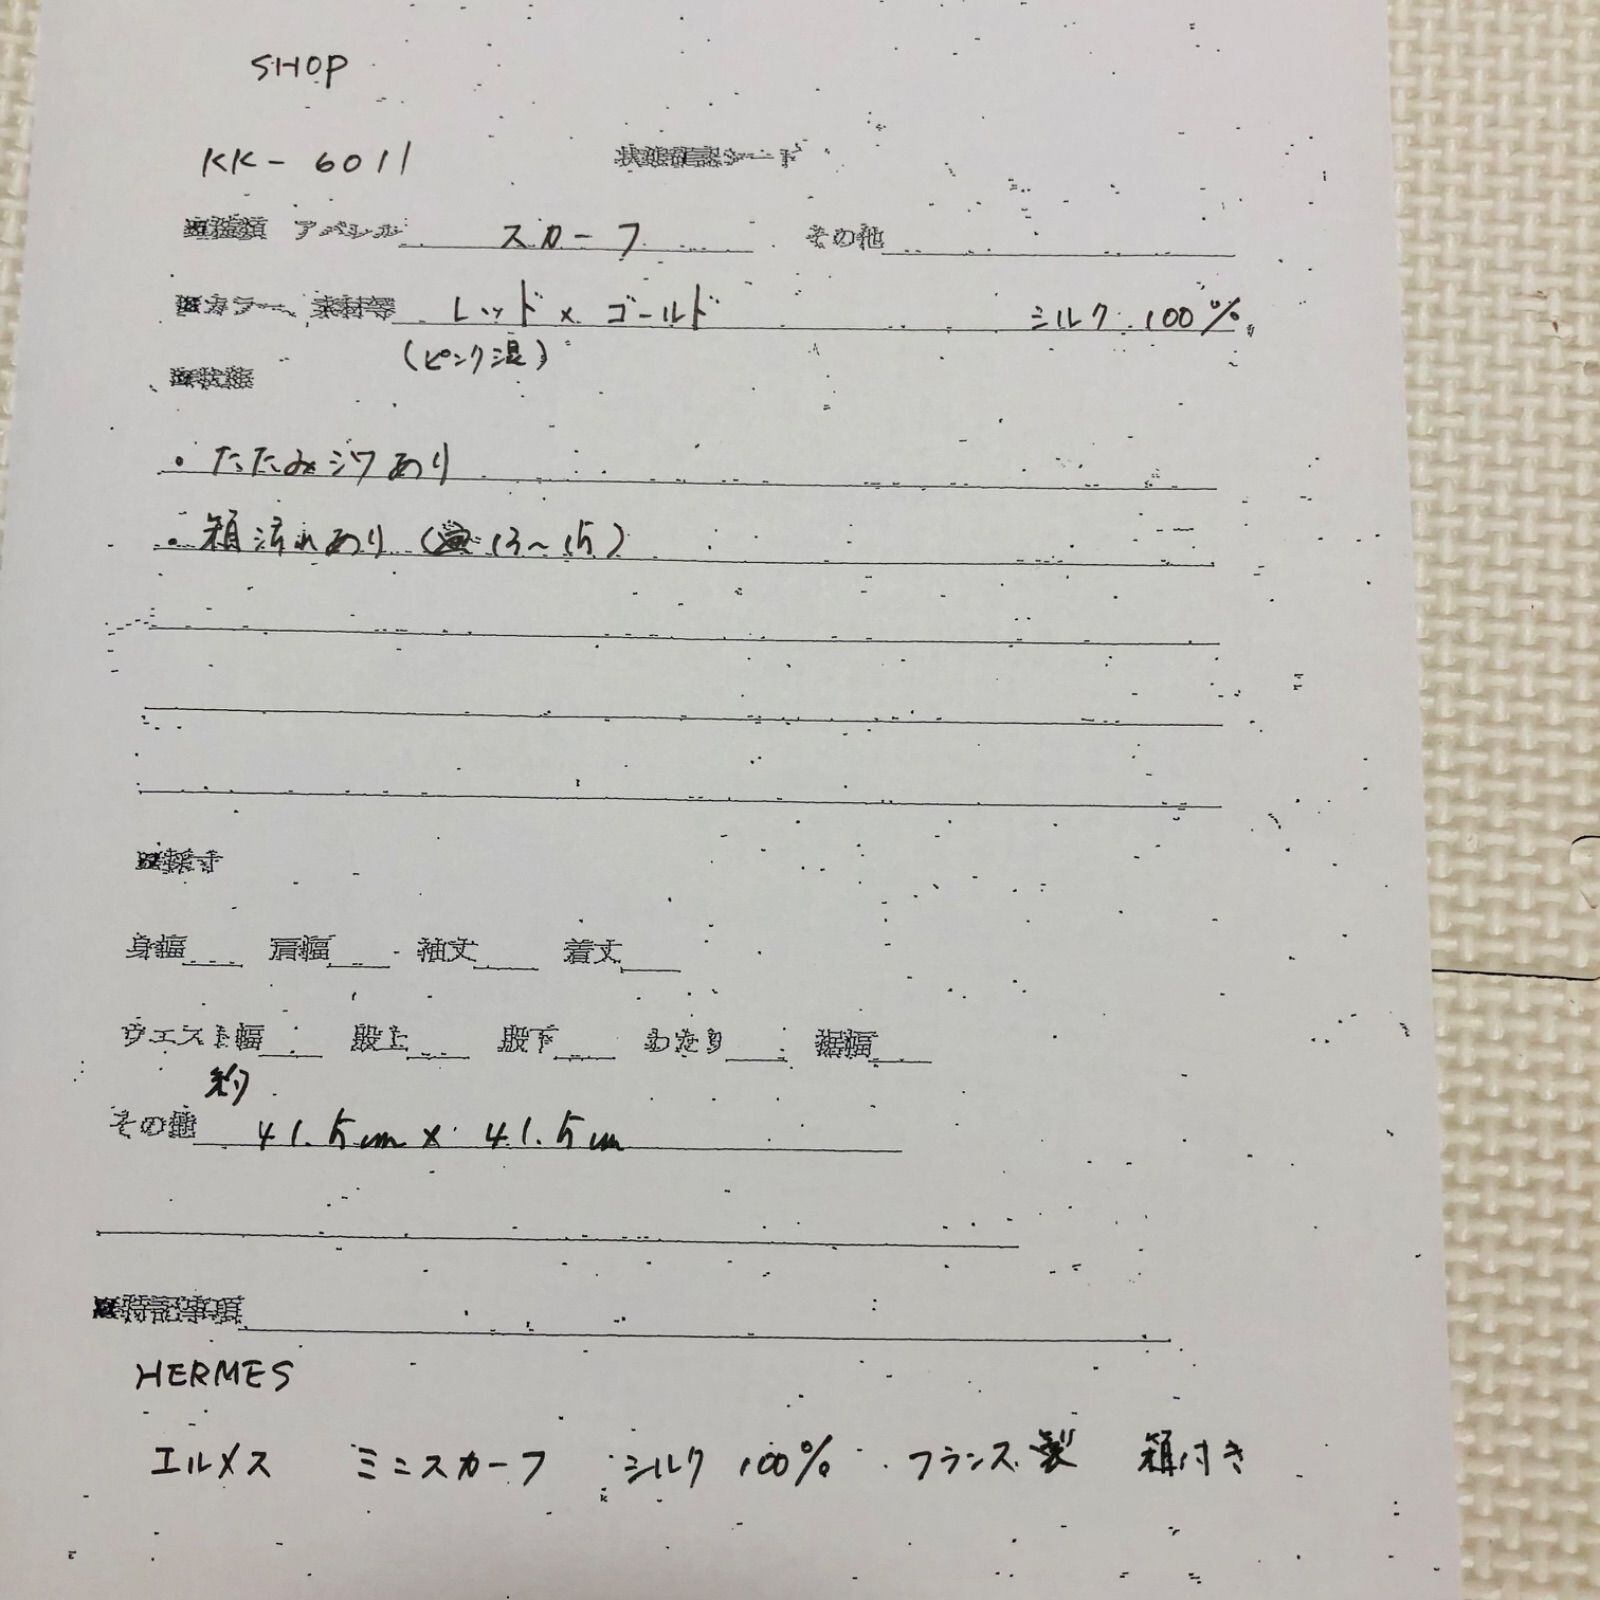 SHOP
KK-6011 状態確認シート
※種類 アパレル スカーフ その他
※カラー、素材等 レッド×ゴールド シルク 100%
(ピンク混)
※状態
・たたみジワあり
・箱汚れあり (13〜15)
※採寸
身幅 肩幅 袖丈 着丈
ウエスト幅 股上 股下 わたり 裾幅
約
その他 41.5cm × 41.5cm
※特記事項
HERMES
エルメス ミニスカーフ シルク 100% フランス製 箱付き